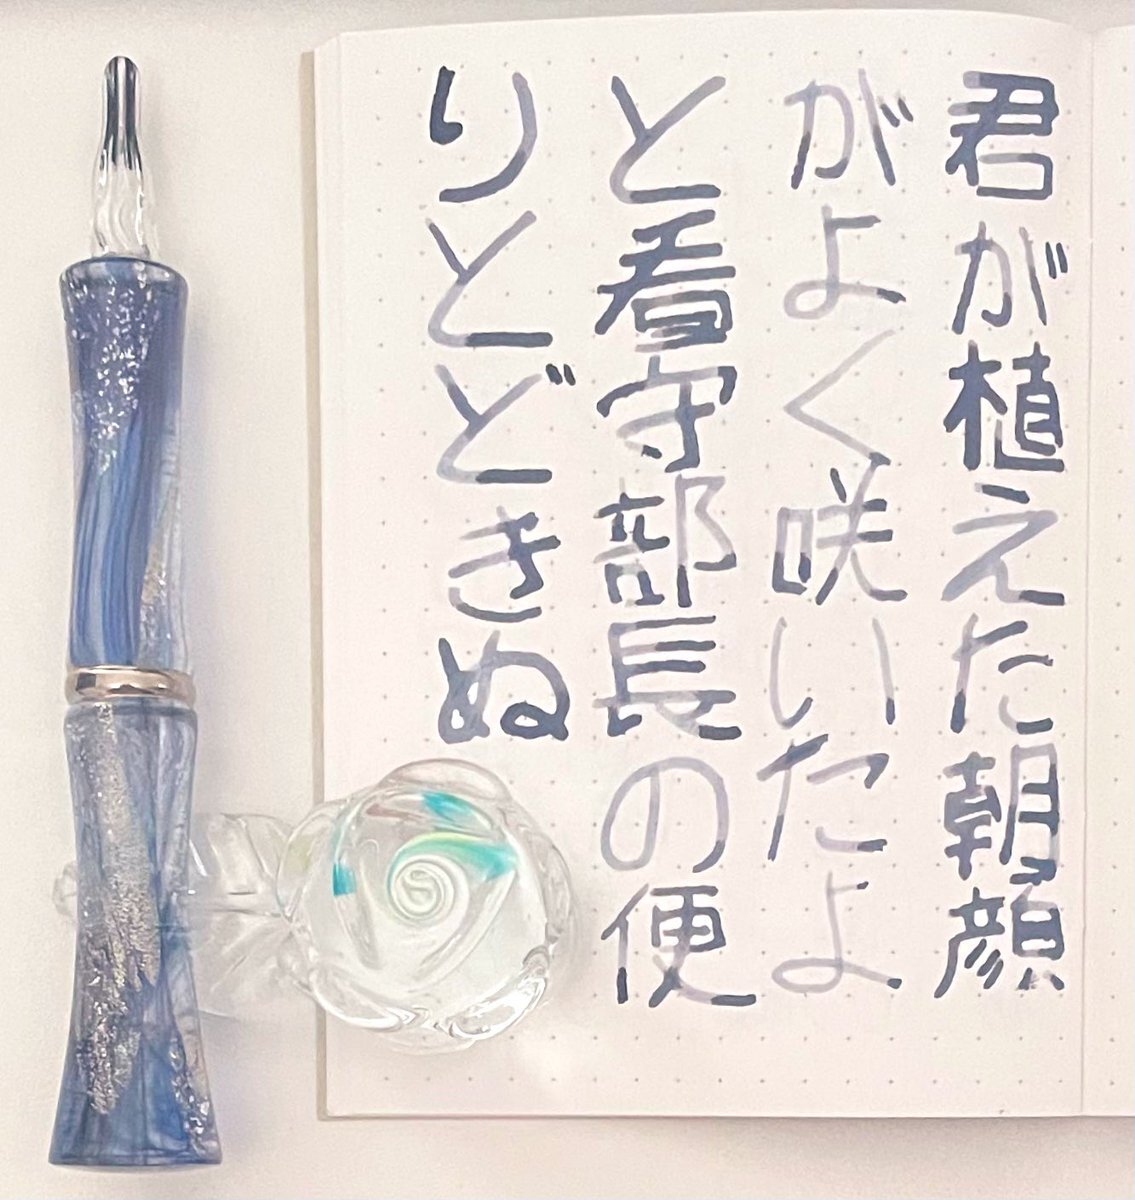 君が植えた朝顔
がよく咲いたよ
と看守部長の便
りとどきぬ